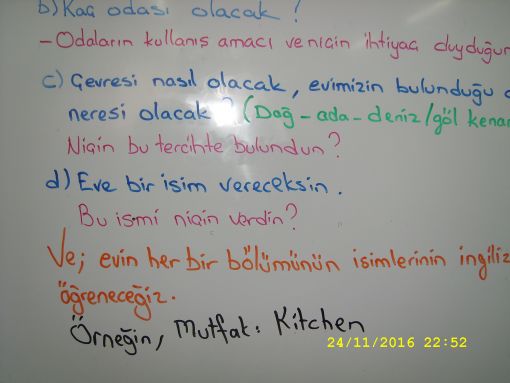 b) Kaç odası olacak?
- Odaların kullanış amacı ve niçin ihtiyaç
c) Çevresi nasıl olacak, evimizin bulunduğu
neresi olacak? (Dağ - ada - deniz/göl
Niçin bu tercihte bulundun?
d) Eve bir isim vereceksin.
Bu ismi niçin verdin?
Ve; evin her bir bölümünün isimlerinin
öğreneceğiz.
Örneğin, Mutfak: Kitchen
24/11/2016 22:52